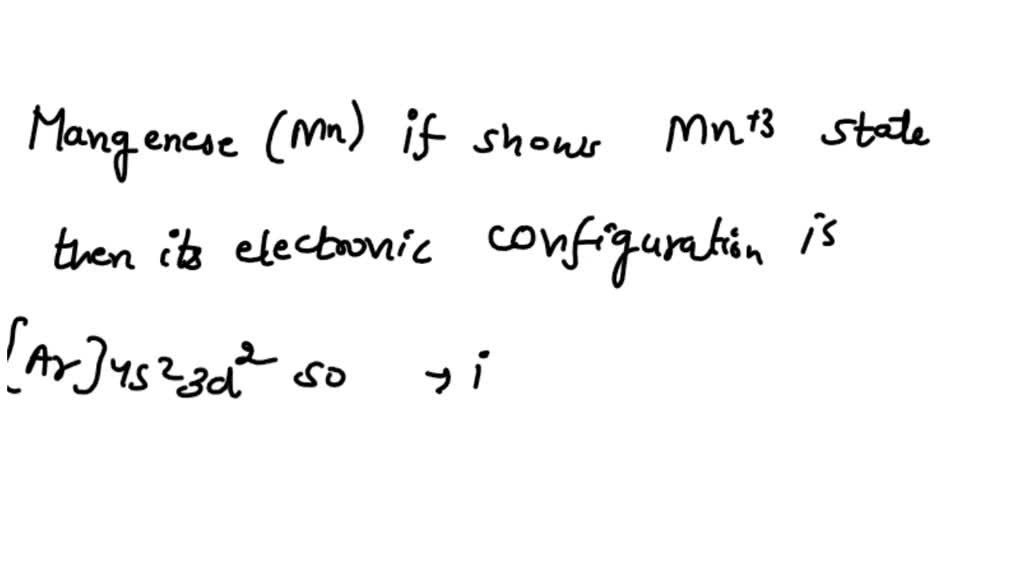 Mangenese (Mn) if shows Mn+3 state
then its electronic configuration is
[Ar]4s23d2 so → i